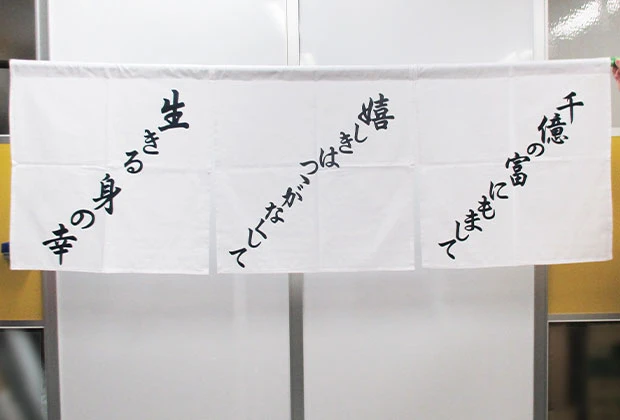 千億の富にもまして
嬉しきはつゝがなくして
生きる身の幸